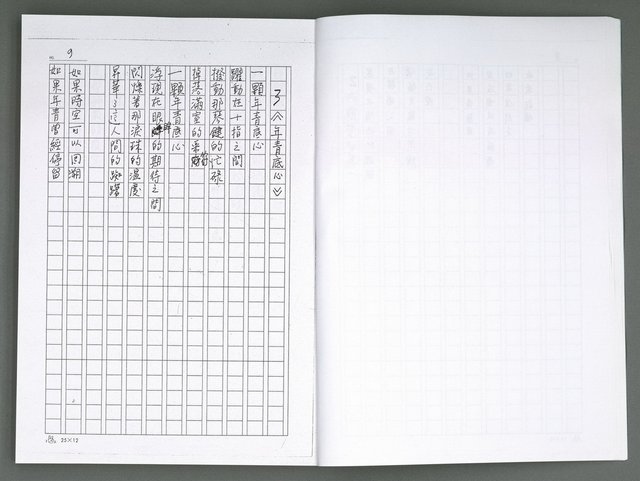 3《年青底心》
一顆年青底心
躍動在十指之間
撥動那琴鍵的忙碌
掉落滿室的音符
一顆年青底心
浮現在眼眸的期待之間
閃爍著那淚珠的溫度
昇華了這人間的踟躕
如果時空可以回溯
如果年青曾經停留
9
25×12